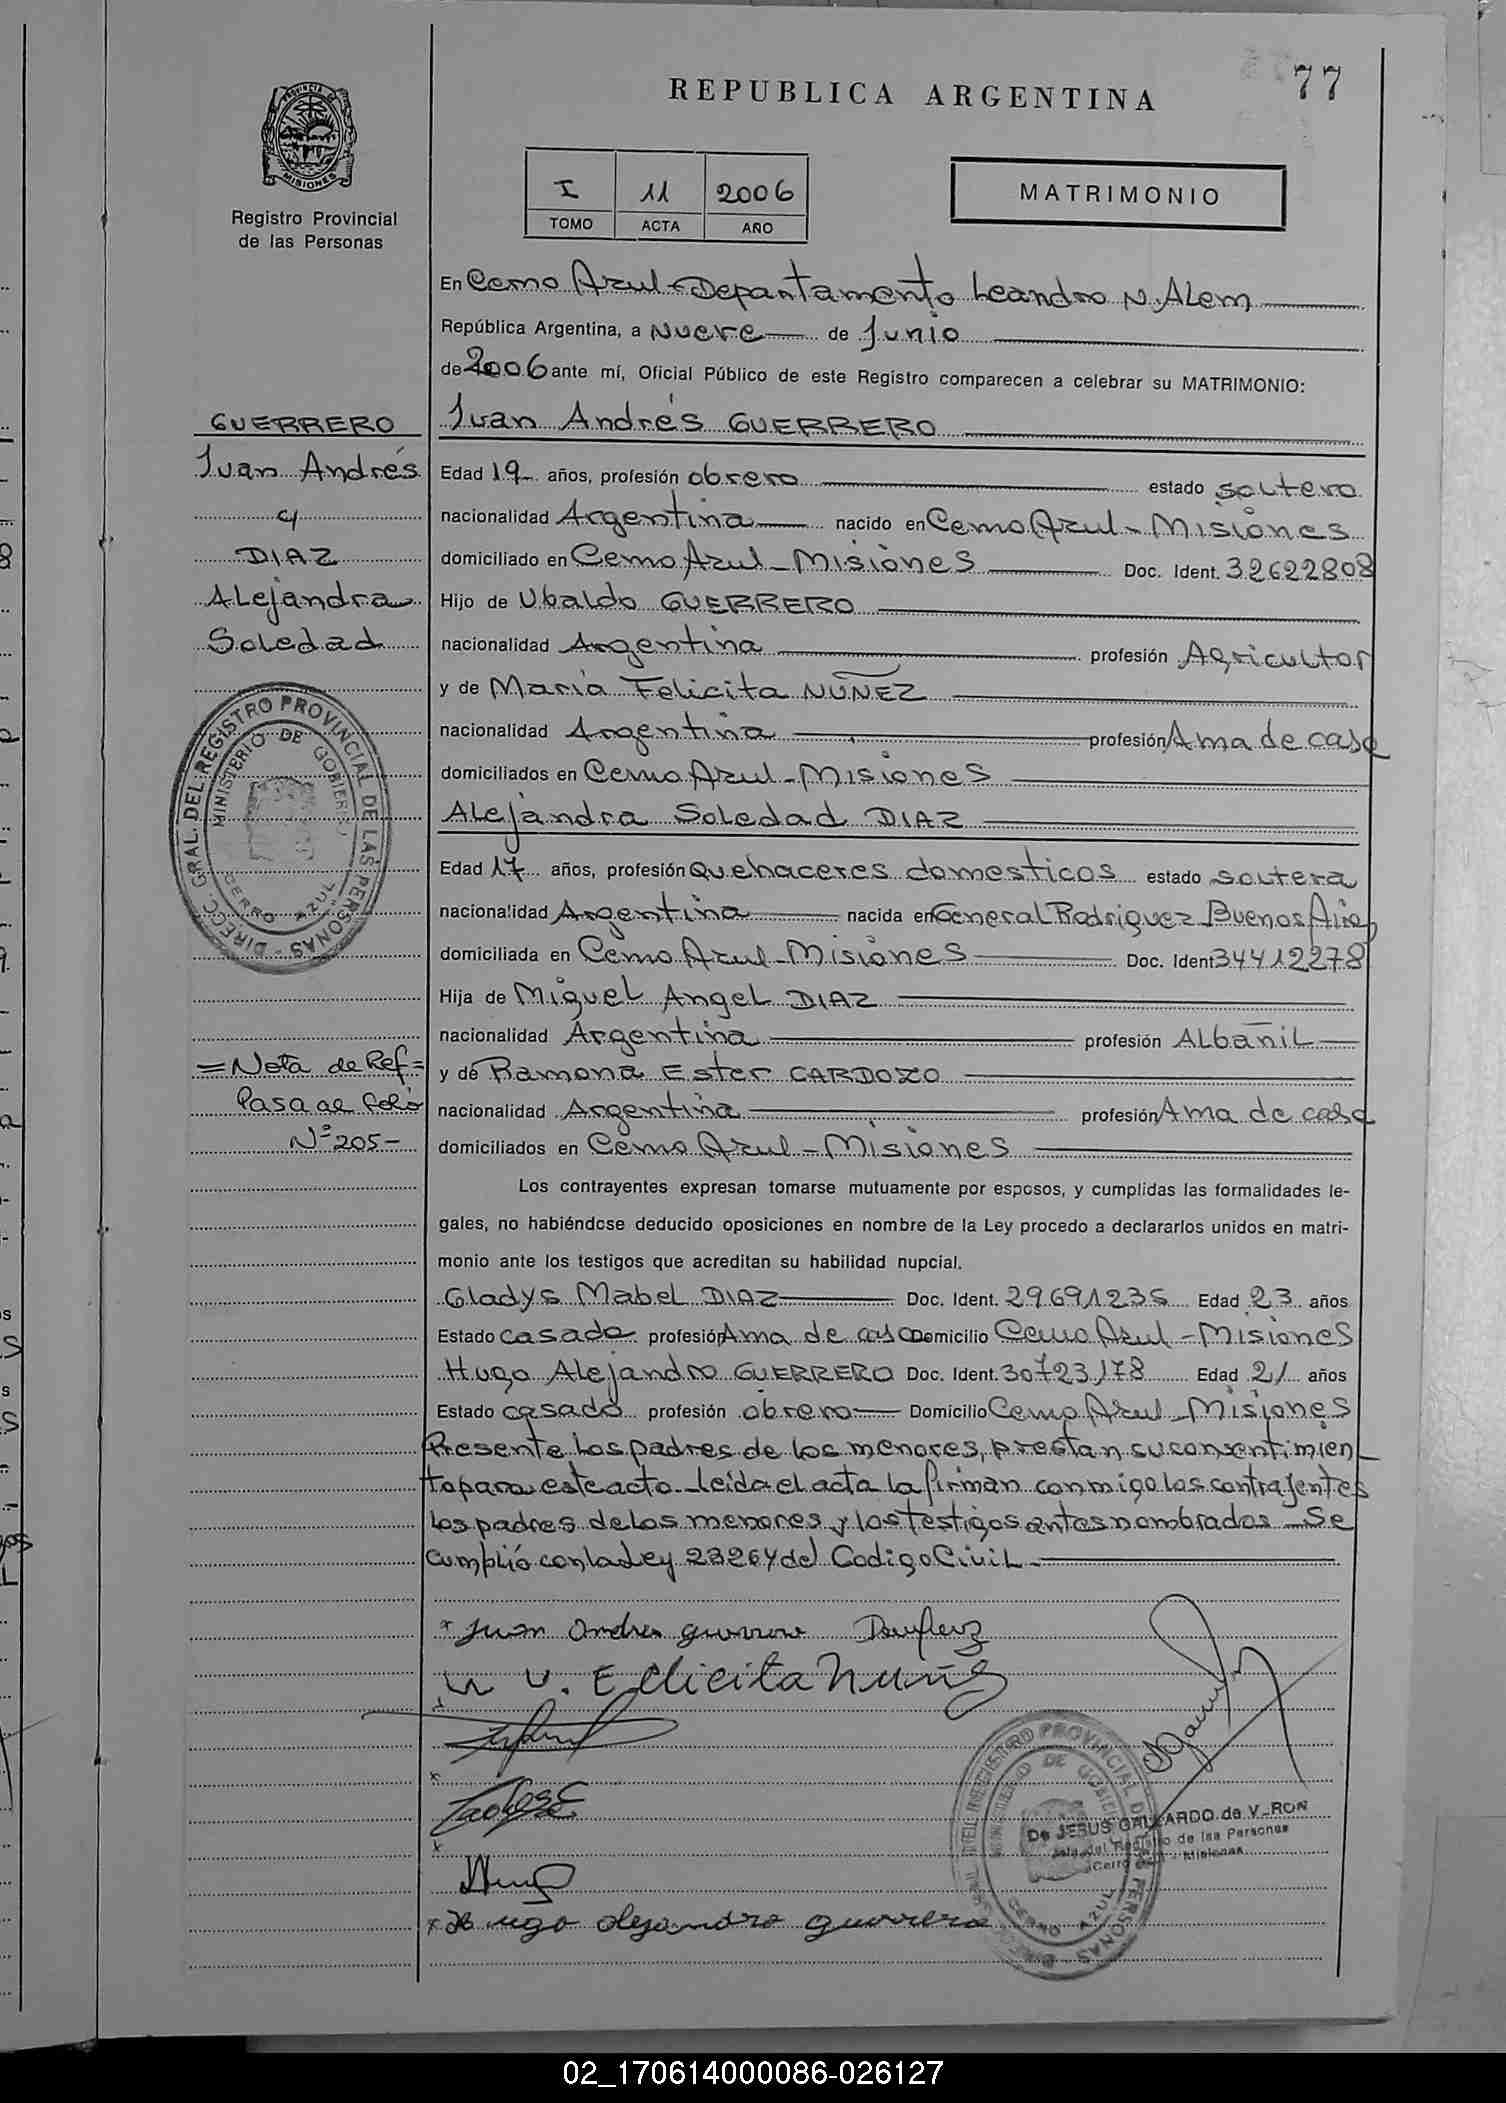 77
REPUBLICA ARGENTINA
PROVINCIA DE
MISIONES
Registro Provincial
de las Personas
I 11 2006
TOMO ACTA AÑO
MATRIMONIO
En Cerro Azul - Departamento Leandro N. Alem
República Argentina, a Nueve de Junio
de 2006 ante mí, Oficial Público de este Registro comparecen a celebrar su MATRIMONIO:
GUERRERO
Juan Andrés
y
DIAZ
Alejandra
Soledad
Juan Andrés GUERRERO
Edad 19 años, profesión obrero estado soltero
nacionalidad Argentina nacido en Cerro Azul - Misiones
domiciliado en Cerro Azul - Misiones Doc. Ident. 32622808
Hijo de Ubaldo GUERRERO
nacionalidad Argentina profesión Agricultor
y de María Felicita NUÑEZ
nacionalidad Argentina profesión Ama de casa
domiciliados en Cerro Azul - Misiones
Alejandra Soledad DIAZ
Edad 17 años, profesión Quehaceres domesticos estado soltera
nacionalidad Argentina nacida en General Rodriguez Buenos Aires
domiciliada en Cerro Azul - Misiones Doc. Ident 34412278
Hija de Miguel Angel DIAZ
nacionalidad Argentina profesión Albañil
y de Ramona Ester CARDOZO
nacionalidad Argentina profesión Ama de casa
domiciliados en Cerro Azul - Misiones
DIRECC. GRAL. DEL REGISTRO PROVINCIAL DE LAS PERSONAS
MINISTERIO DE GOBIERNO
CERRO AZUL
= Nota de Ref =
Pasa al folio
Nº 205 -
Los contrayentes expresan tomarse mutuamente por esposos, y cumplidas las formalidades le-
gales, no habiéndose deducido oposiciones en nombre de la Ley procedo a declararlos unidos en matri-
monio ante los testigos que acreditan su habilidad nupcial.
Gladys Mabel DIAZ Doc. Ident. 29691235 Edad 23 años
Estado casada profesión Ama de casa Domicilio Cerro Azul - Misiones
Hugo Alejandro GUERRERO Doc. Ident. 30723178 Edad 21 años
Estado casado profesión obrero Domicilio Cerro Azul - Misiones
Presente los padres de los menores, prestan su consentimien
to para este acto - Leída el acta la firman conmigo los contrayentes
los padres de los menores y los testigos antes nombrados - Se
cumplió con la Ley 23264 del Codigo Civil -
x Juan Andres guerrero
Elicita Nuñez
x
x
x
x Hugo Alejandro guerrero
De JESUS GALLARDO de V_RON
Jefa del Registro de las Personas
Cerro Azul - Misiones
MINISTERIO DE GOBIERNO
CERRO AZUL
02_170614000086-026127